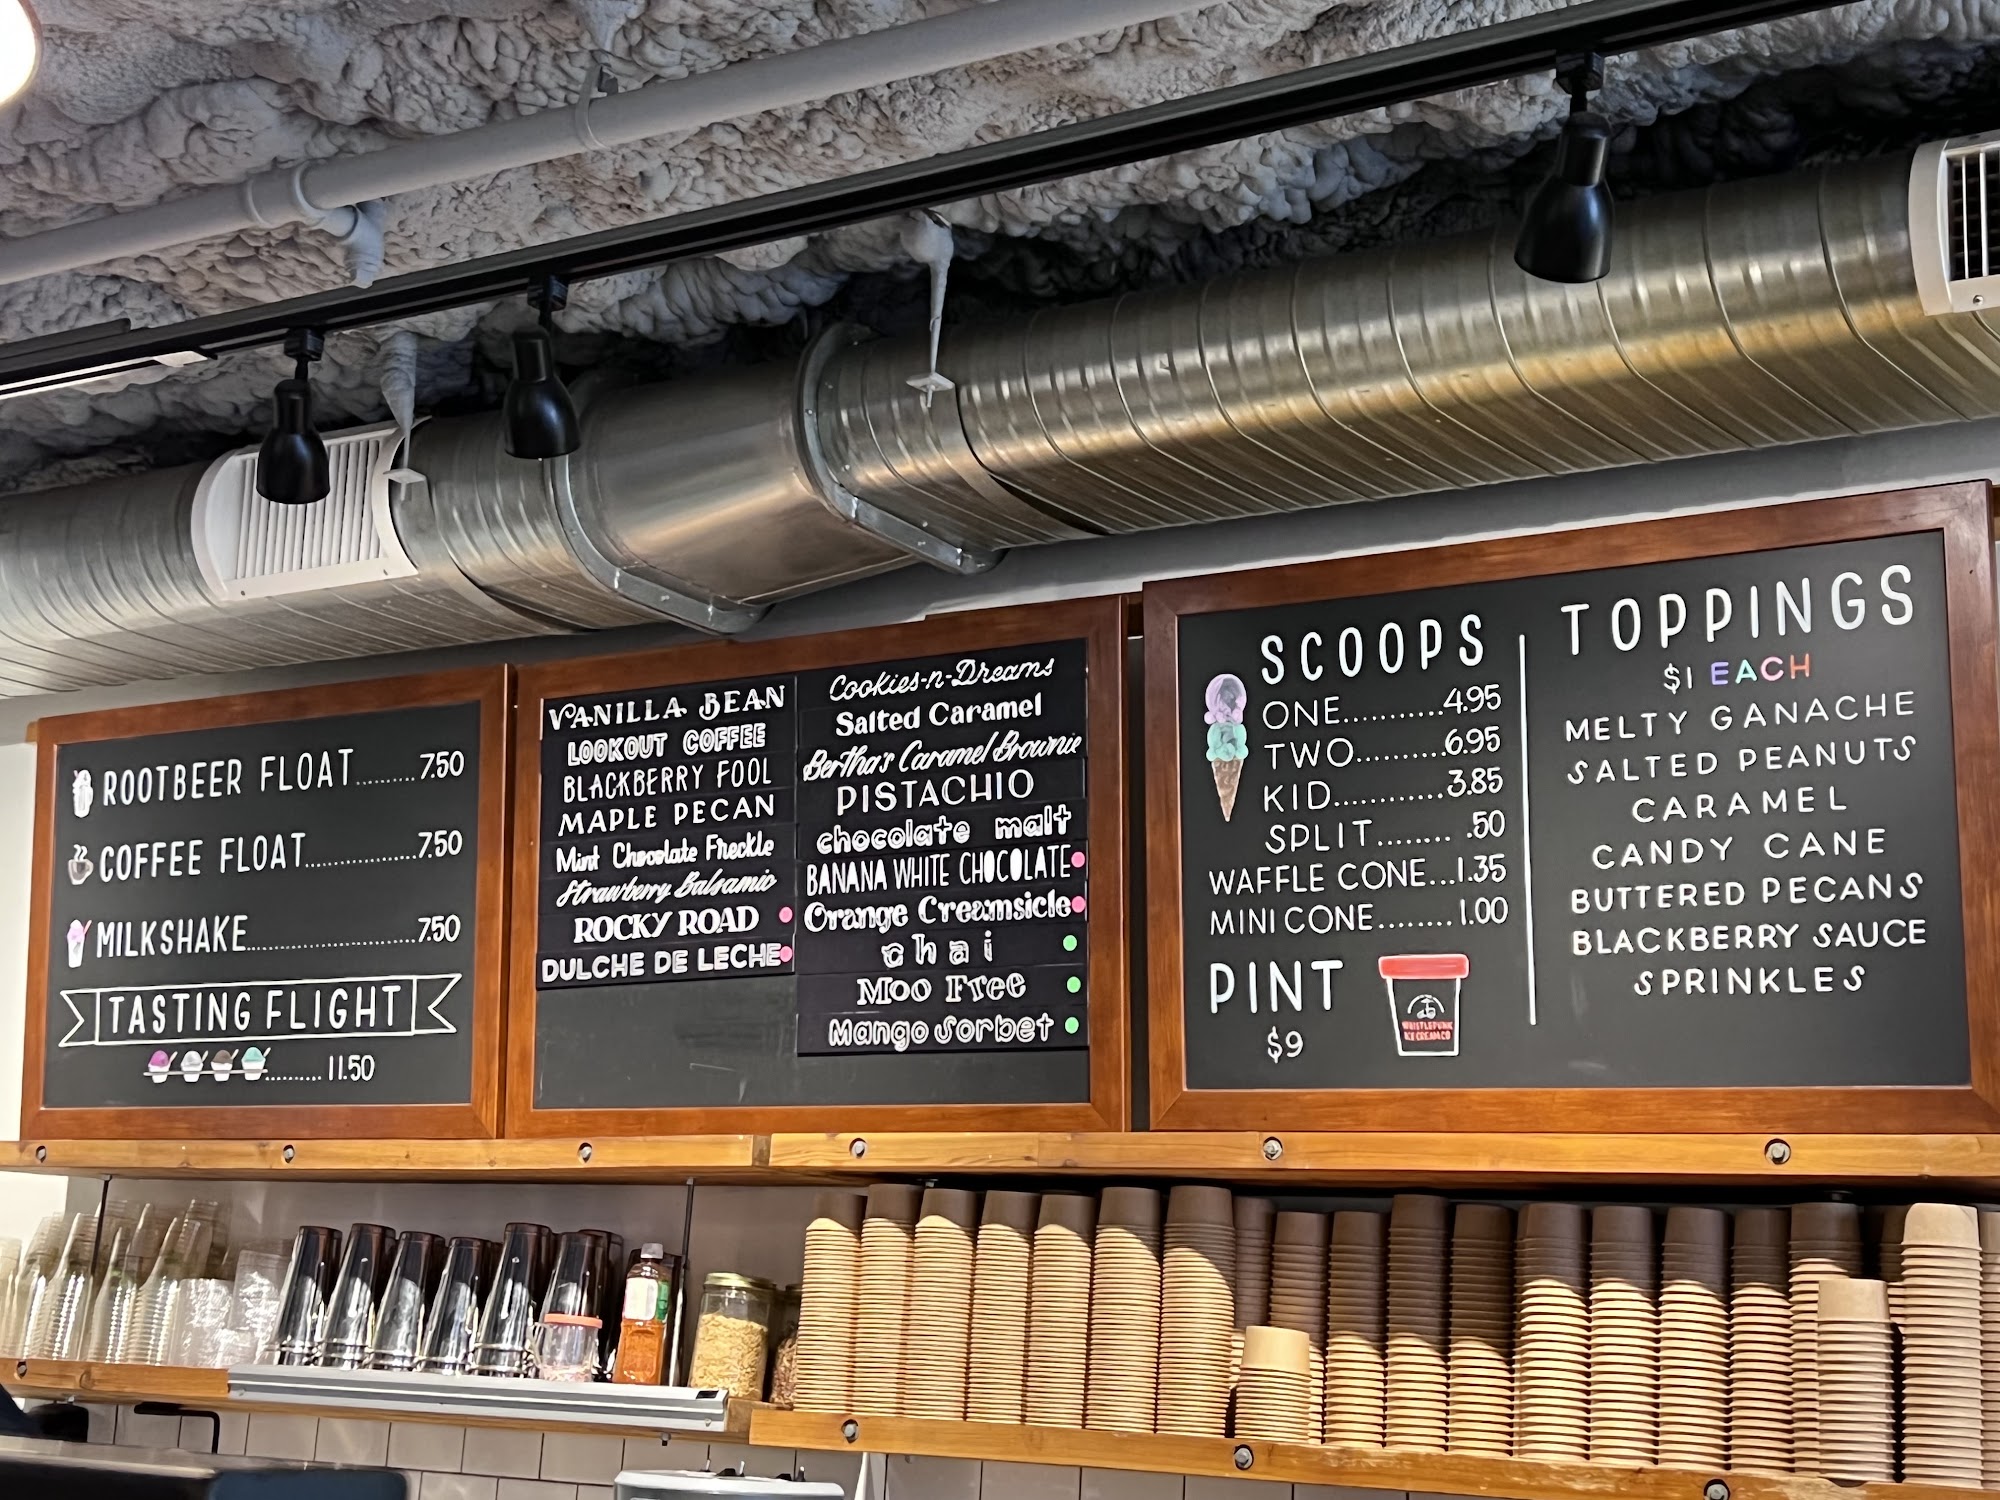 ROOTBEER FLOAT.........7.50
COFFEE FLOAT.................7.50
MILKSHAKE.........................7.50
TASTING FLIGHT
.......... 11.50
VANILLA BEAN
LOOKOUT COFFEE
BLACKBERRY FOOL
MAPLE PECAN
Mint Chocolate Freckle
Strawberry Balsamic
ROCKY ROAD
DULCHE DE LECHE
Cookies-n-Dreams
Salted Caramel
Bertha's Caramel Brownie
PISTACHIO
chocolate malt
BANANA WHITE CHOCOLATE
Orange Creamsicle
chai
Moo Free
Mango Sorbet
SCOOPS
ONE...........4.95
TWO.........6.95
KID............3.85
SPLIT........ .50
WAFFLE CONE...1.35
MINI CONE........1.00
PINT
$9
WHISTLEPUNK
ICE CREAM CO
TOPPINGS
$1 EACH
MELTY GANACHE
SALTED PEANUTS
CARAMEL
CANDY CANE
BUTTERED PECANS
BLACKBERRY SAUCE
SPRINKLES